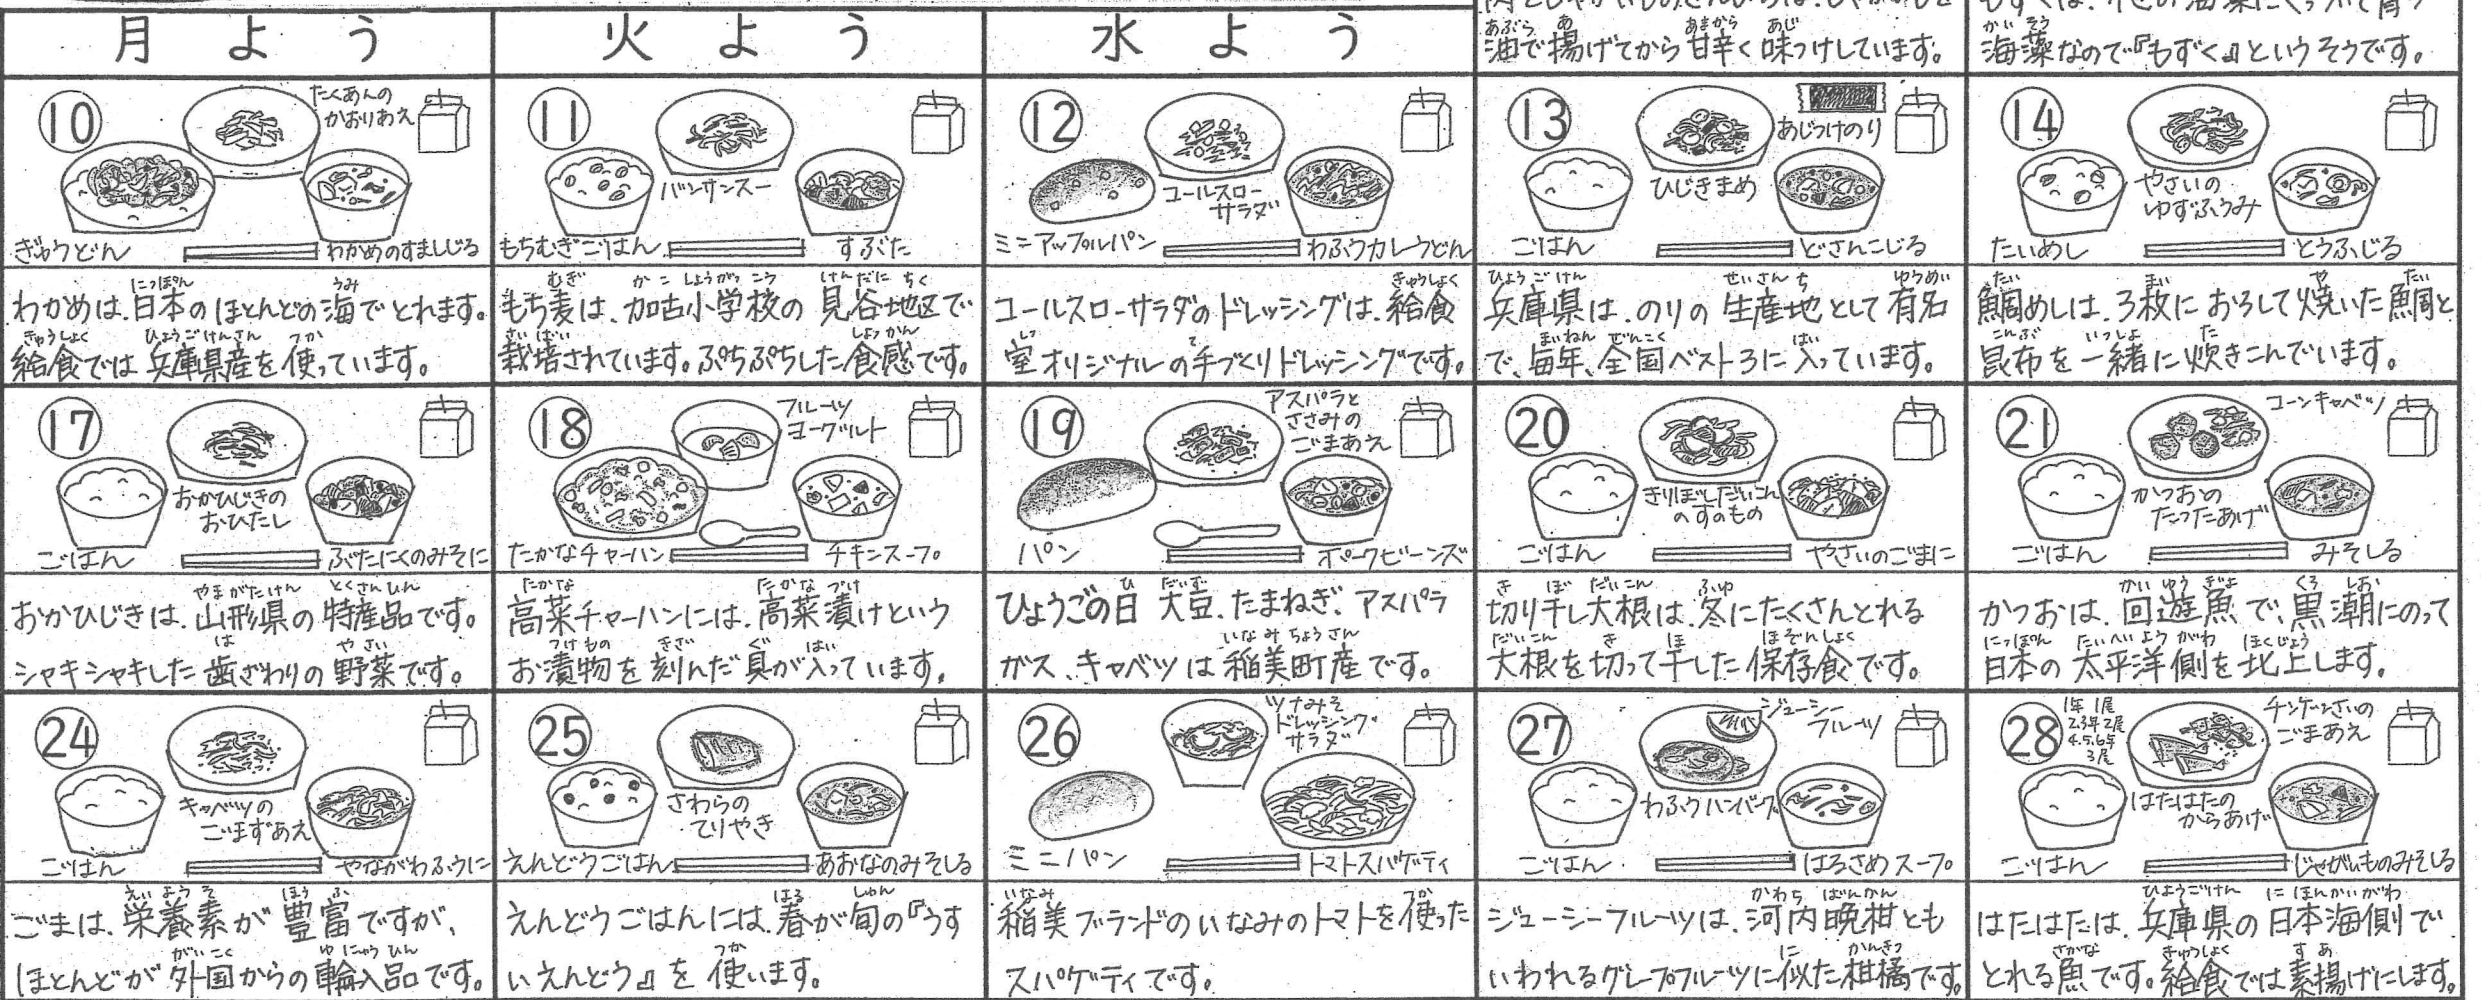 月よう
火よう
水よう
油で揚げてから甘辛く味つけしています。
海藻なので『もずく』というそうです。
⑩
たくあんの
かおりあえ
ぎゅうどん
わかめのすましじる
わかめは、日本のほとんどの海でとれます。
給食では兵庫県産を使っています。
⑪
バンサンスー
もちむぎごはん
すぶた
もち麦は、加古小学校の見谷地区で
栽培されています。ぷちぷちした食感です。
⑫
コールスロー
サラダ
ミニアップルパン
わふうカレーうどん
コールスローサラダのドレッシングは、給食
室オリジナルの手づくりドレッシングです。
⑬
あじつけのり
ひじきまめ
ごはん
どさんこじる
兵庫県は、のりの生産地として有名
で、毎年、全国ベスト3に入っています。
⑭
やさいの
ゆずふうみ
たいめし
とうふじる
鯛めしは、3枚におろして焼いた鯛と
昆布を一緒に炊きこんでいます。
⑰
おかひじきの
おひたし
ごはん
ぶたにくのみそに
おかひじきは、山形県の特産品です。
シャキシャキした歯ざわりの野菜です。
⑱
フルーツ
ヨーグルト
たかなチャーハン
チキンスープ
高菜チャーハンには、高菜漬けという
お漬物を刻んだ具が入っています。
⑲
アスパラと
ささみの
ごまあえ
パン
ポークビーンズ
ひょうごの日 大豆、たまねぎ、アスパラ
ガス、キャベツは稲美町産です。
⑳
きりぼしだいこん
のすのもの
ごはん
やさいのごまに
切り干し大根は、冬にたくさんとれる
大根を切って干した保存食です。
㉑
コーンキャベツ
かつおの
たつたあげ
ごはん
みそしる
かつおは、回遊魚で、黒潮にのって
日本の太平洋側を北上します。
㉔
キャベツの
ごまずあえ
ごはん
やながわふうに
ごまは、栄養素が豊富ですが、
ほとんどが外国からの輸入品です。
㉕
さわらの
てりやき
えんどうごはん
あおなのみそしる
えんどうごはんには、春が旬の『うす
いえんどう』を使います。
㉖
ツナみそ
ドレッシング
サラダ
ミニパン
トマトスパゲティ
稲美ブランドのいなみのトマトを使った
スパゲティです。
㉗
ジューシー
フルーツ
わふうハンバーグ
ごはん
はるさめスープ
ジューシーフルーツは、河内晩柑とも
いわれるグレープフルーツに似た柑橘です。
㉘
1年 1尾
2.3年 2尾
4.5.6年
3尾
チンゲンさいの
ごまあえ
はたはたの
からあげ
ごはん
じゃがいものみそしる
はたはたは、兵庫県の日本海側で
とれる魚です。給食では素揚げにします。